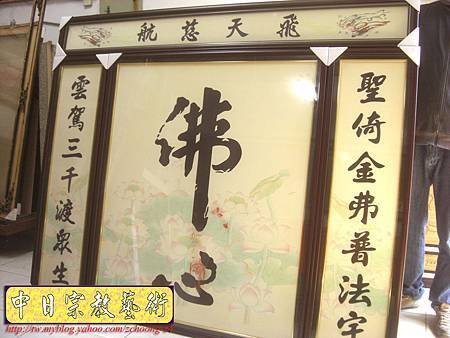 飛天慈航
聖倚金弗普法宇
佛心
雲駕三千渡眾生
中日宗教藝術
http://tw.myblog.yahoo.com/zchoong-tw